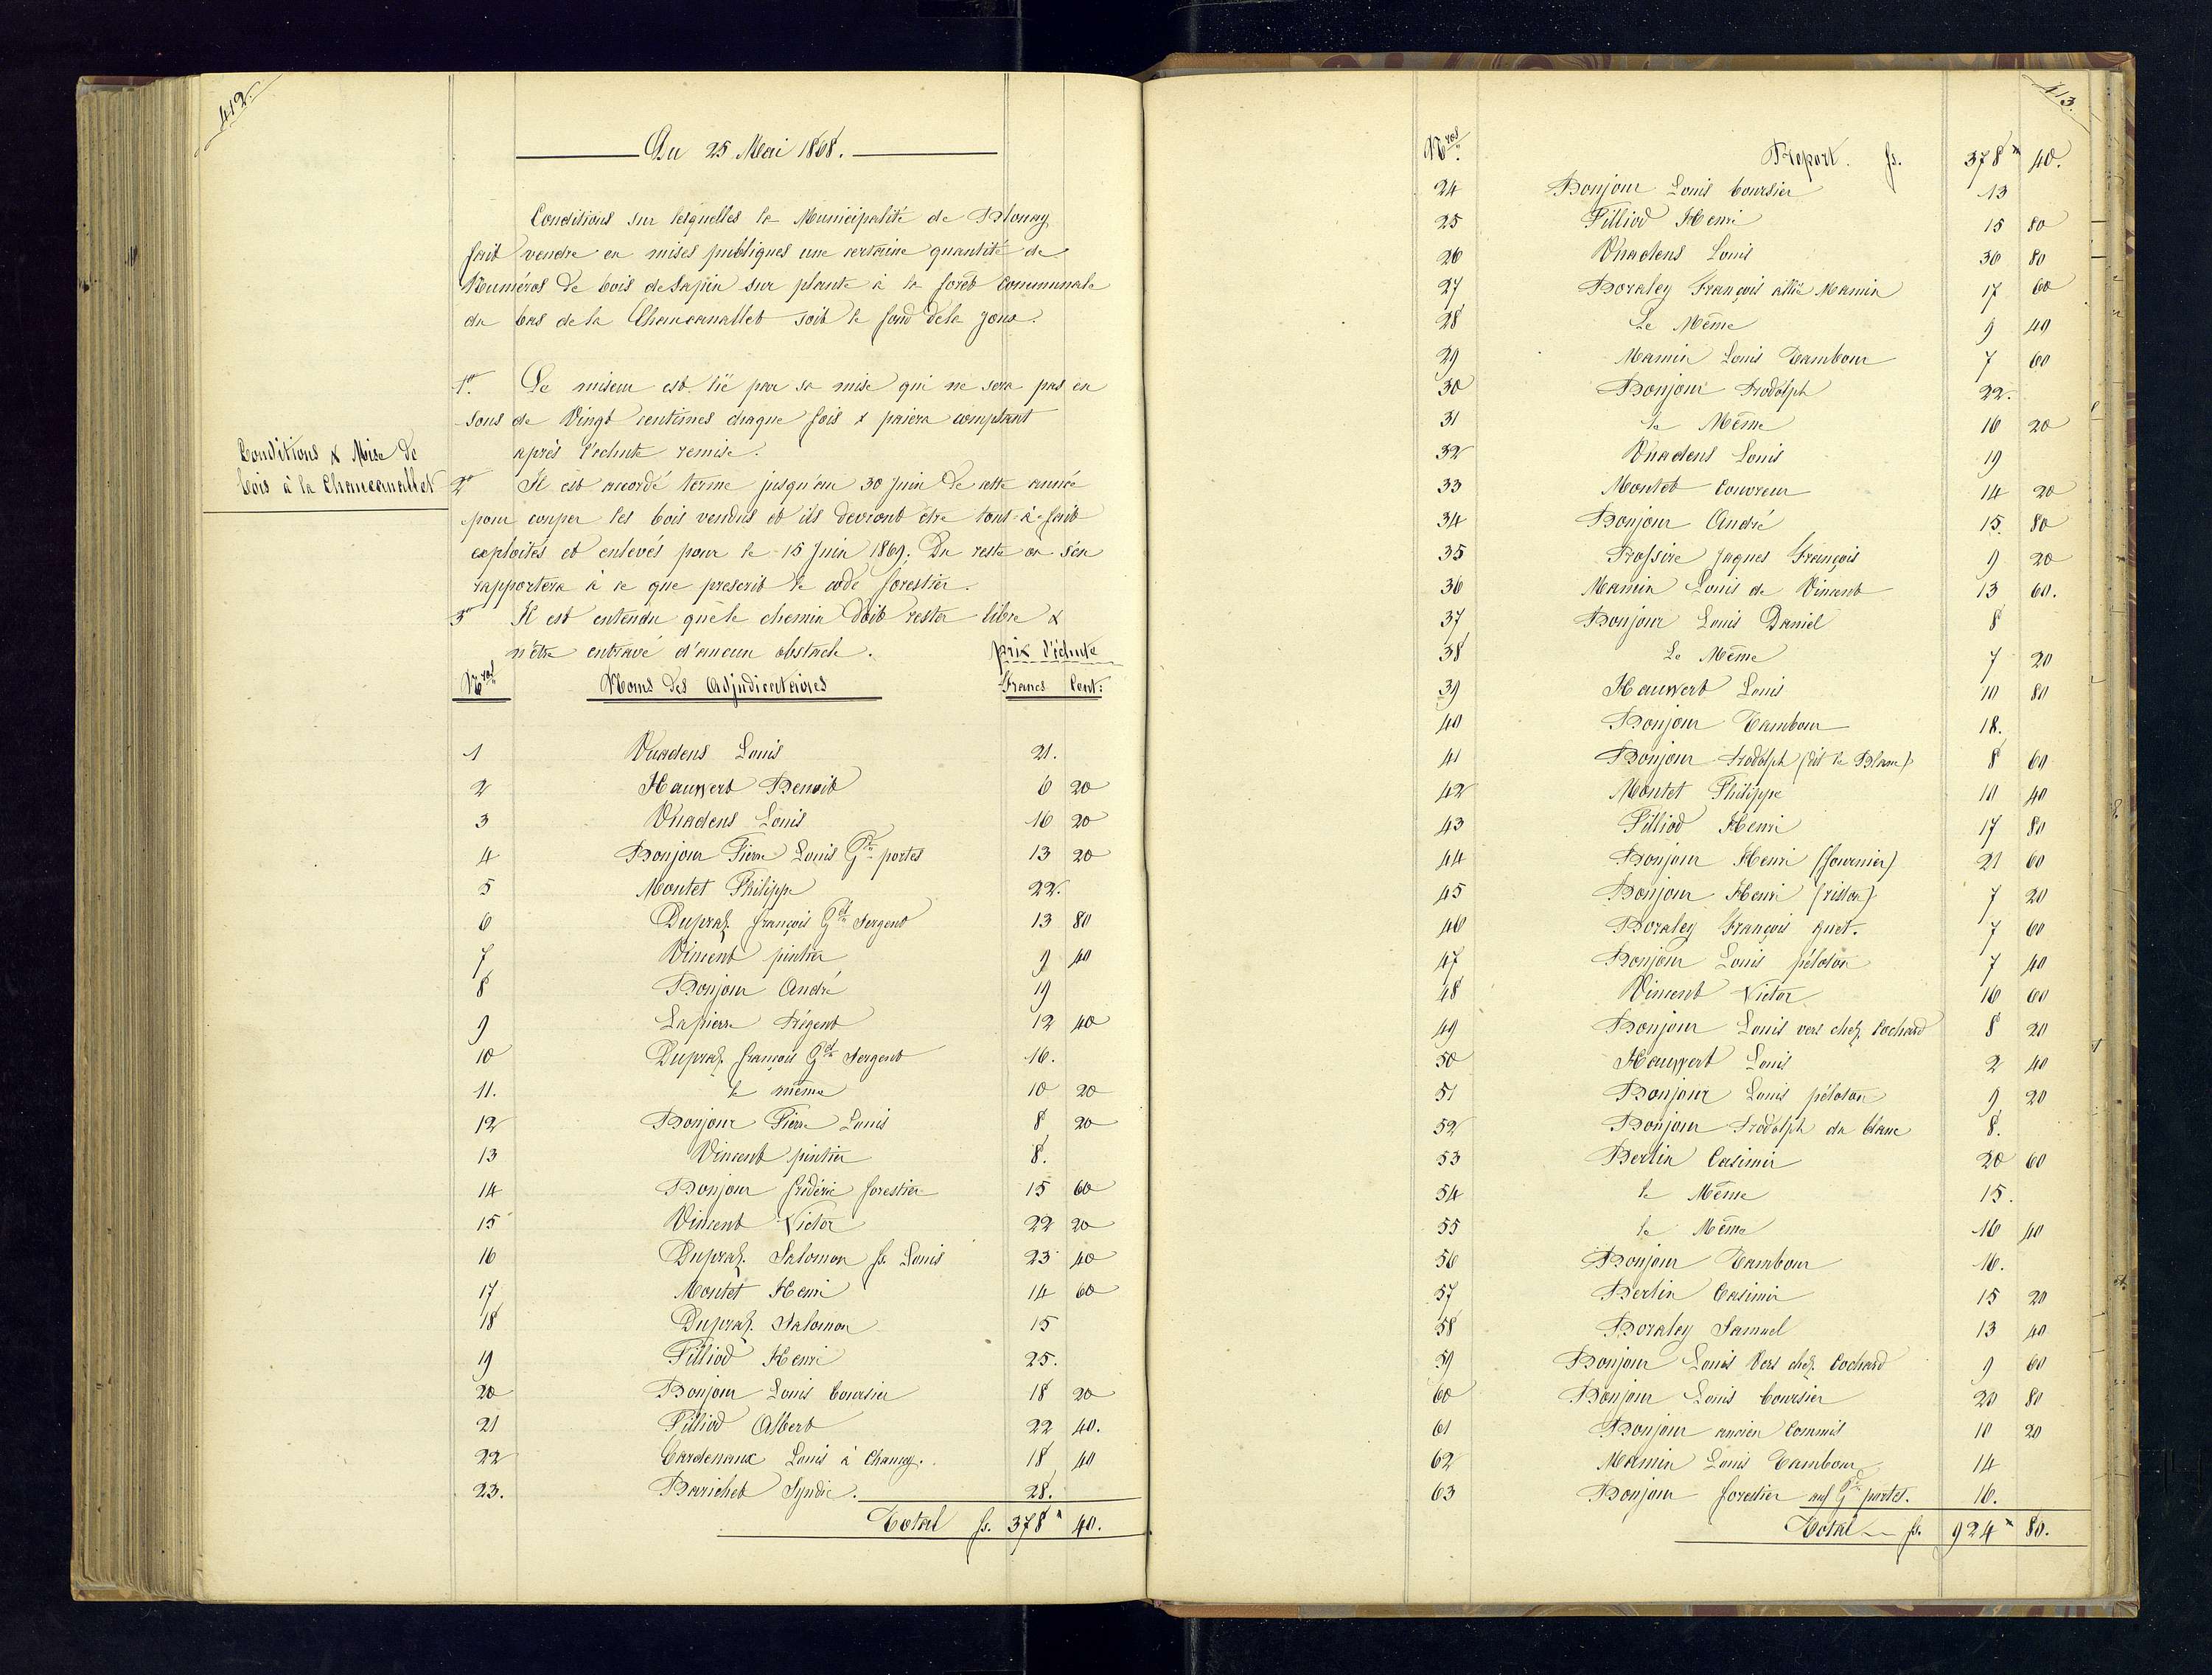 412.
Du 25 Mai 1868.
Conditions sur lesquelles la Municipalité de Blonay
fait vendre en mises publiques une certaine quantité de
Numéros de bois de Sapin sur plante à la forêt Communale
du bas de la Chaucanallet soit le fond de la joux.
1o. Le miseur est lié par sa mise qui ne sera pas en
sous de Vingt centimes chaque fois & paiera comptant
après l'echute remise.
Conditions & Mise de
bois à la Chaucanallet
2o Il est accordé terme jusqu'au 30 Juin de cette année
pour couper les bois vendus et ils devront être tout-à-fait
exploités et enlevés pour le 15 Juin 1869. Du reste on s'en
rapportera à ce que prescrit le code forestier.
3o Il est entendu que le chemin doit rester libre &
n'être entravé d'aucun obstacle. prix d'échute
Nros Noms des Adjudicataires Francs Cent:
1 Vuadens Louis 21.
2 Hauwert Benoit 6 20
3 Vuadens Louis 16 20
4 Bonjour Pierre Louis Gde portes 13 20
5 Montet Philippe 22.
6 Dupraz François Gd Sergent 13 80
7 Vincent pintier 9 40
8 Bonjour André 19
9 Lapierre Régent 12 40
10 Dupraz françois Gd Sergent 16.
11. le même 10 20
12 Bonjour Pierre Louis 8 20
13 Vincent pintier 8.
14 Bonjour frédéric forestier 15 60
15 Vincent Victor 22 20
16 Dupraz Salomon fs. Louis 23 40
17 Montet Henri 14 60
18 Dupraz Salomon 15
19 Pilliod Henri 25.
20 Bonjour Louis boursier 18 20
21 Pilliod Albert 22 40.
22 Cardenaux Louis à Chamy. 18 40
23. Barichet Syndic. 28.
Total fs. 378 " 40.
413.
Nros Report. fs. 378 " 40.
24 Bonjour Louis boursier 13
25 Pilliod Henri 15 80
26 Vuadens Louis 36 80
27 Boraley François allié Mamin 17 60
28 Le Même 9 40
29 Mamin Louis Tambour 7 60
30 Bonjour Rodolph 22.
31 le Même 16 20
32 Vuadens Louis 19
33 Montet Couvreur 14 20
34 Bonjour André 15. 80
35 Rossire Jaques François 9 20
36 Mamin Louis de Vincent 13 60.
37 Bonjour Louis Daniel 8
38 Le Même 7 20
39 Hauwert Louis 10 80
40 Bonjour Tambour 18.
41 Bonjour Rodolph (dit le Blanc) 8 60
42 Montet Philippe 10 40
43 Pilliod Henri 17 80
44 Bonjour Henri (fournier) 21 60
45 Bonjour Henri (riston) 7 20
46 Boraley François guet. 7 60
47 Bonjour Louis péloton 7 40
48 Vincent Victor 16 60
49 Bonjour Louis vers chez Cochard 8 20
50 Hauwert Louis 2 40
51 Bonjour Louis péloton 9 20
52 Bonjour Rodolph du blanc 8.
53 Bertin Casimir 20 60
54 le Même 15.
55 le Même 16 40
56 Bonjour Tambour 16.
57 Bertin Casimir 15 20
58 Boraley Samuel 13 40
59 Bonjour Louis Vers chez Cochard 9 60
60 Bonjour Louis boursier 20 80
61 Bonjour ancien Commis 10 20
62 Mamin Louis Tambour 14
63 Bonjour forestier aux Gde portes. 16.
Total fs. 924 " 80.